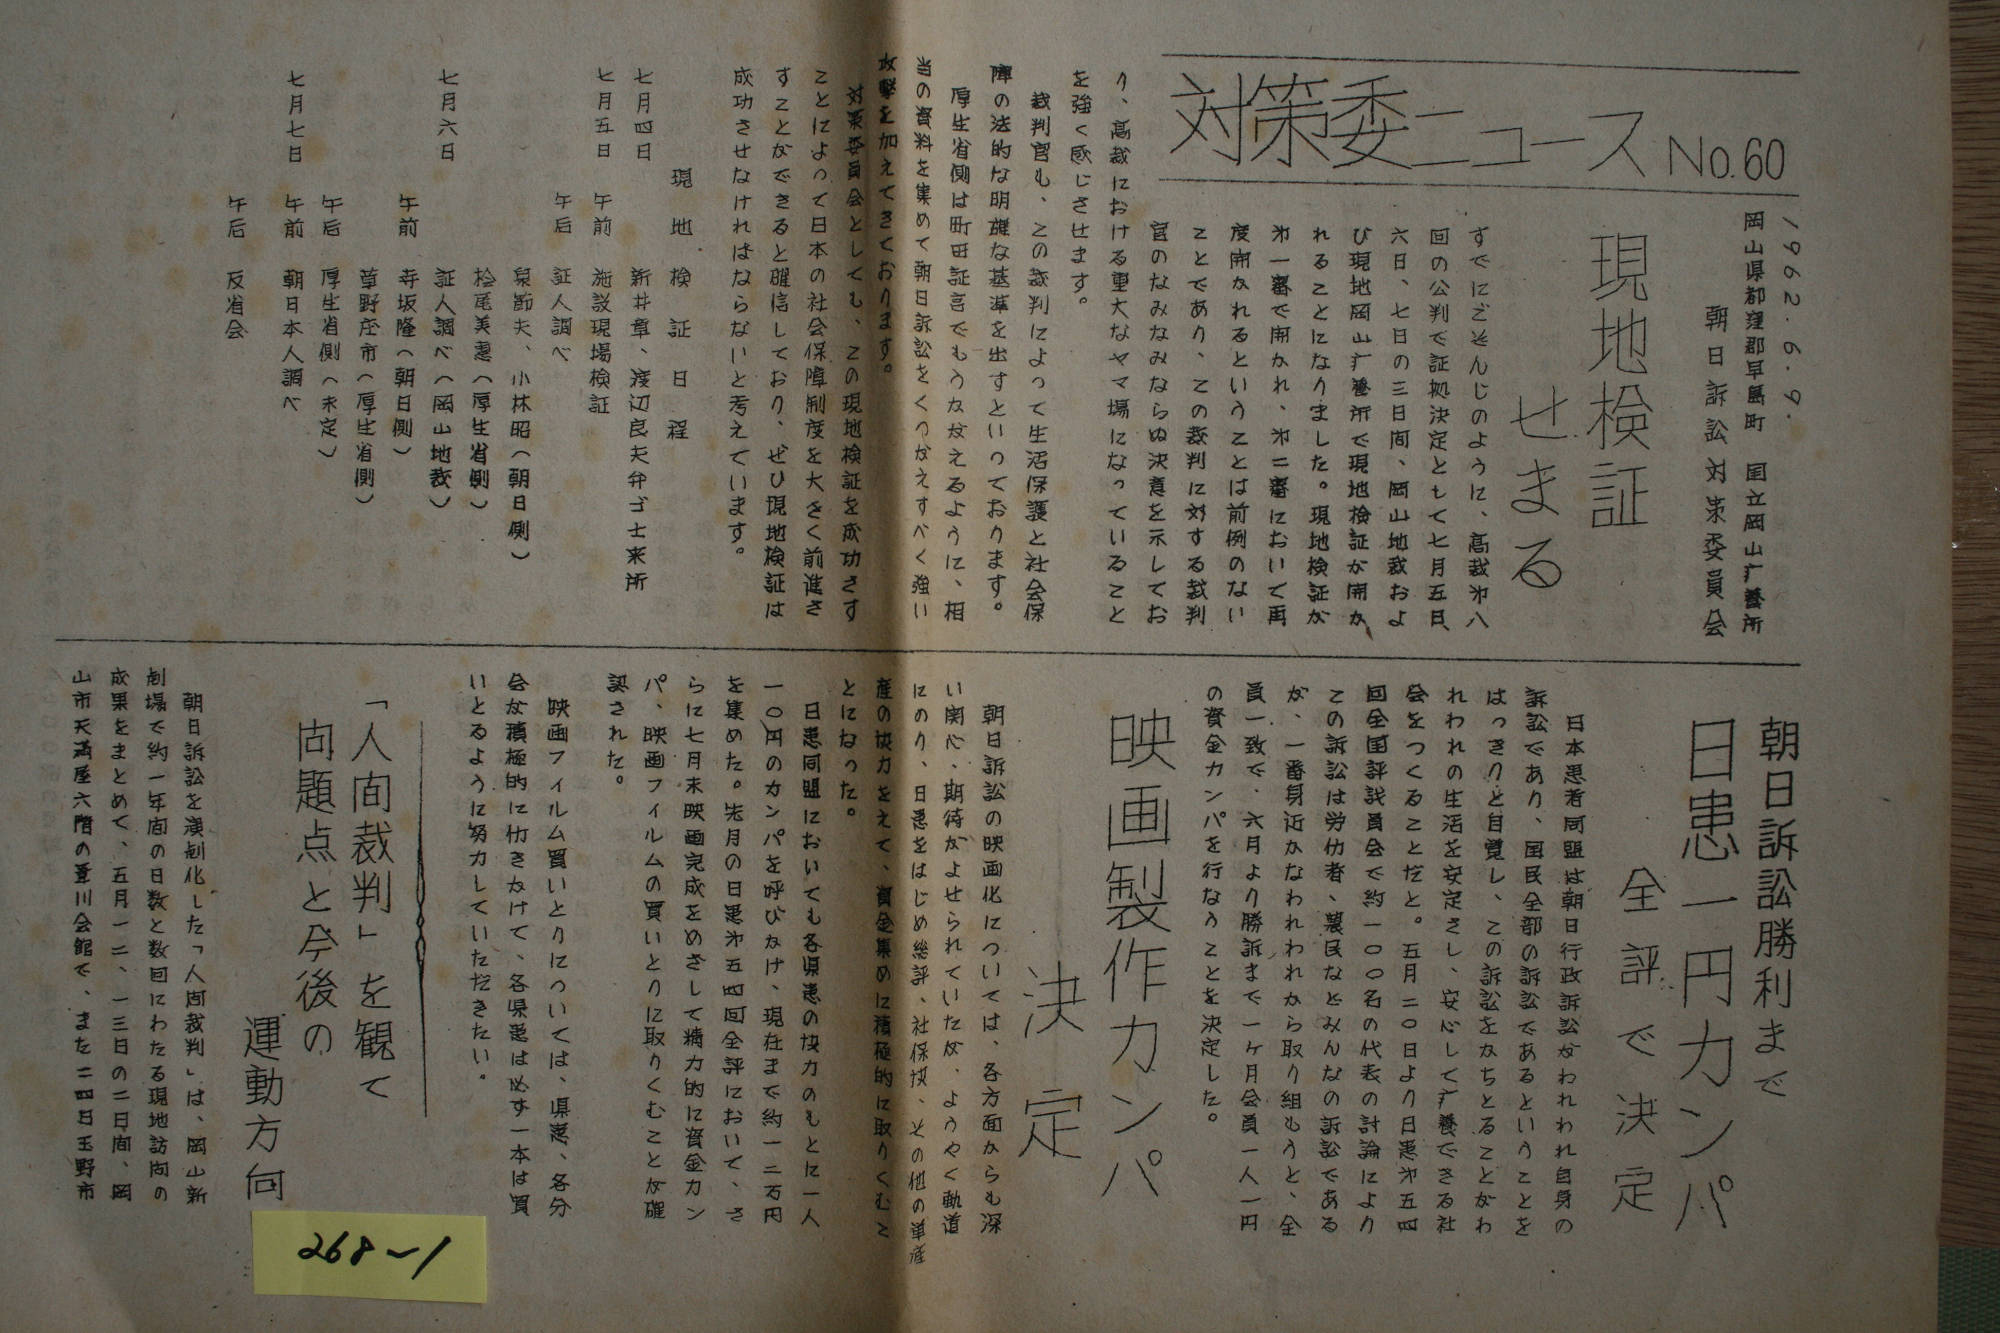 対策委ニュース No.60
1962.6.9.
岡山県都窪郡早島町 国立岡山疒養所
朝日訴訟対策委員会
現地検証
せまる
すでにごぞんじのように、高裁㐧八
回の公判で証拠決定として七月五日、
六日、七日の三日间、岡山地裁およ
び現地岡山疒養所で現地検証が開か
れることになりました。現地検証が
㐧一審で開かれ、㐧二審において再
度開かれるということは前例のない
ことであり、この裁判に対する裁判
官のなみなみならぬ決意を示してお
り、高裁における重大なヤマ場になっていること
を強く感じさせます。
裁判官も、この裁判によって生活保護と社会保
障の法的な明確な基準を出すといっております。
厚生省側は町田証言でもうかがえるように、相
当の資料を集めて朝日訴訟をくつがえすべく強い
攻撃を加えてきております。
対策委員会としても、この現地検証を成功さす
ことによって日本の社会保障制度を大きく前進さ
すことができると確信しており、ぜひ現地検証は
成功させなければならないと考えています。
現地検証日程
七月四日 新井章、渡辺良夫弁ゴ士来所
七月五日 午前 施設現場検証
午后 証人調べ
泉節夫、小林昭(朝日側)
桧尾美恵(厚生省側)
七月六日 証人調べ(岡山地裁)
午前 寺坂隆(朝日側)
草野庄市(厚生省側)
午后 厚生省側(未定)
七月七日 午前 朝日本人調べ
午后 反省会
朝日訴訟勝利まで
日患一円カンパ
全評で決定
日本患者同盟は朝日行政訴訟がわれわれ自身の
訴訟であり、国民全部の訴訟であるということを
はっきりと自覚し、この訴訟をかちとることがわ
れわれの生活を安定さし、安心して疒養できる社
会をつくることだと。五月二〇日より日患㐧五四
回全国評議員会で約一〇〇名の代表の討論により
この訴訟は労仂者、農民などみんなの訴訟である
が、一番身近かなわれわれから取り組もうと、全
員一致で、六月より勝訴まで一ヶ月会員一人一円
の資金カンパを行なうことを決定した。
映画製作カンパ
決定
朝日訴訟の映画化については、各方面からも深
い関心、期待がよせられていたが、ようやく軌道
にのり、日患をはじめ総評、社保協、その他の単産
産の協力をえて、資金集めに積極的に取りくむこ
とになった。
日患同盟においても各県患の協力のもとに一人
一〇円のカンパを呼びかけ、現在まで約一二万円
を集めた。先月の日患㐧五四回全評において、さ
らに七月末映画完成をめざして精力的に資金カン
パ、映画フィルムの買いとりに取りくむことが確
認された。
映画フィルム買いとりについては、県患、各分
会が積極的に仂きかけて、各県患は必ず一本は買
いとるように努力していただきたい。
「人间裁判」を観て
问題点と今後の
運動方向
朝日訴訟を演劇化した「人间裁判」は、岡山新
劇場で約一年间の日数と数回にわたる現地訪问の
成果をまとめて、五月一二、一三日の二日间、岡
山市天満屋六階の葦川会館で、また二四日玉野市
268～1